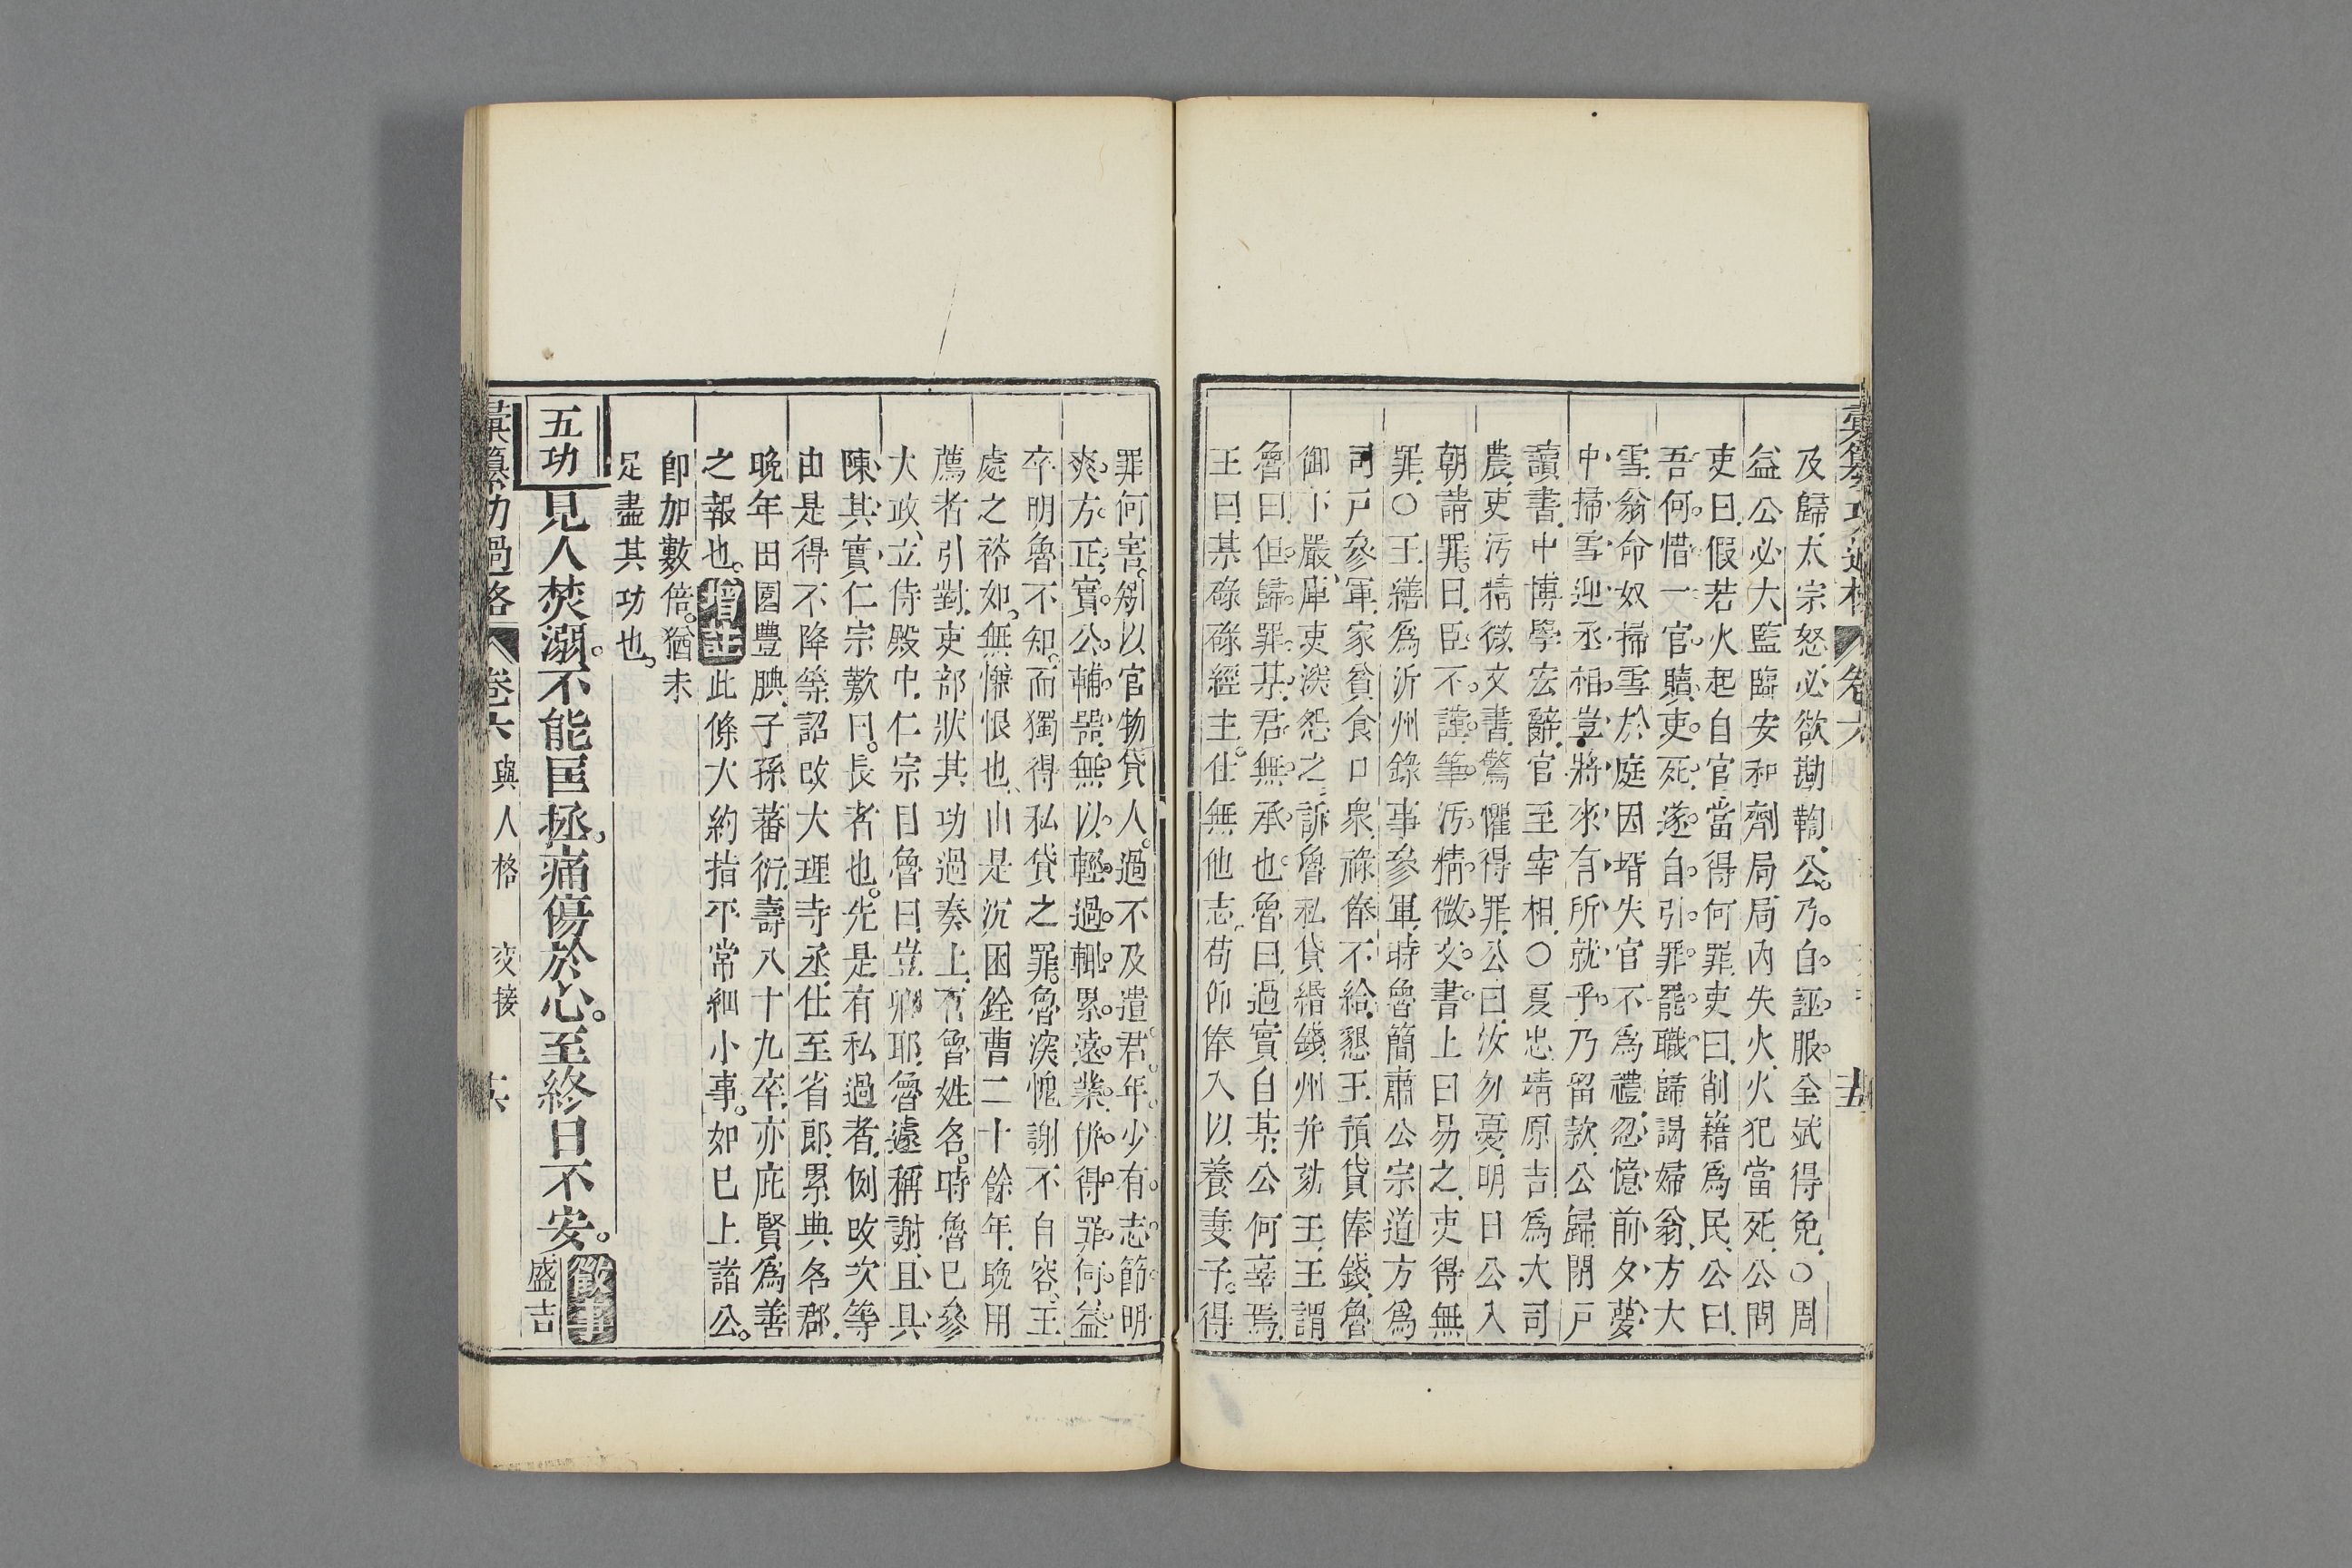 彙纂功過格 卷六 十五
及歸太宗怒必欲勘鞫公乃自誣服全斌得免○周
益公必大監臨安和劑局局內失火火犯當死公問
吏曰假若火起自官當得何罪吏曰削籍爲民公曰
吾何惜一官贖吏死遂自引罪罷職歸謁婦翁方大
雪翁命奴掃雪於庭因壻失官不爲禮忽憶前夕夢
中掃雪迎丞相豈將來有所就乎乃留款公歸閉戶
讀書中博學宏辭官至宰相○夏忠靖原吉爲大司
農吏污精微文書驚懼得罪公曰汝勿憂明日公入
朝請罪曰臣不謹筆汚精微文書上曰易之吏得無
罪○王繕爲沂州錄事參軍時魯簡肅公宗道方爲
司戶參軍家貧食口衆祿俸不給懇王預貸俸錢魯
御下嚴庫吏深怨之訴魯私貸緡錢州幷劾王王謂
魯曰但歸罪某君無承也魯曰過實自某公何辜焉
王曰某碌碌經主仕無他志苟仰俸入以養妻子得
罪何害矧以官物貸人過不及遣君年少有志節明
爽方正實公輔器無以輕過輒累遠業併得罪何益
卒明魯不知而獨得私貸之罪魯深愧謝不自容王
處之裕如無慊恨也由是沉困銓曹二十餘年晚用
薦者引對吏部狀其功過奏上有魯姓名時魯已參
大政立侍殿中仁宗目魯曰豈卿耶魯遽稱謝且具
陳其實仁宗歎曰長者也先是有私過者例改次等
由是得不降等詔改大理寺丞仕至省郎累典名郡
晚年田園豐腴子孫蕃衍壽八十九卒亦庇賢爲善
之報也 增註 此條大約指平常細小事如已上諸公
卽加數倍猶未
足盡其功也
五功 見人焚溺不能匡拯痛傷於心至終日不安 徵事 盛吉
彙纂功過格 卷六 與人格 交接 十六